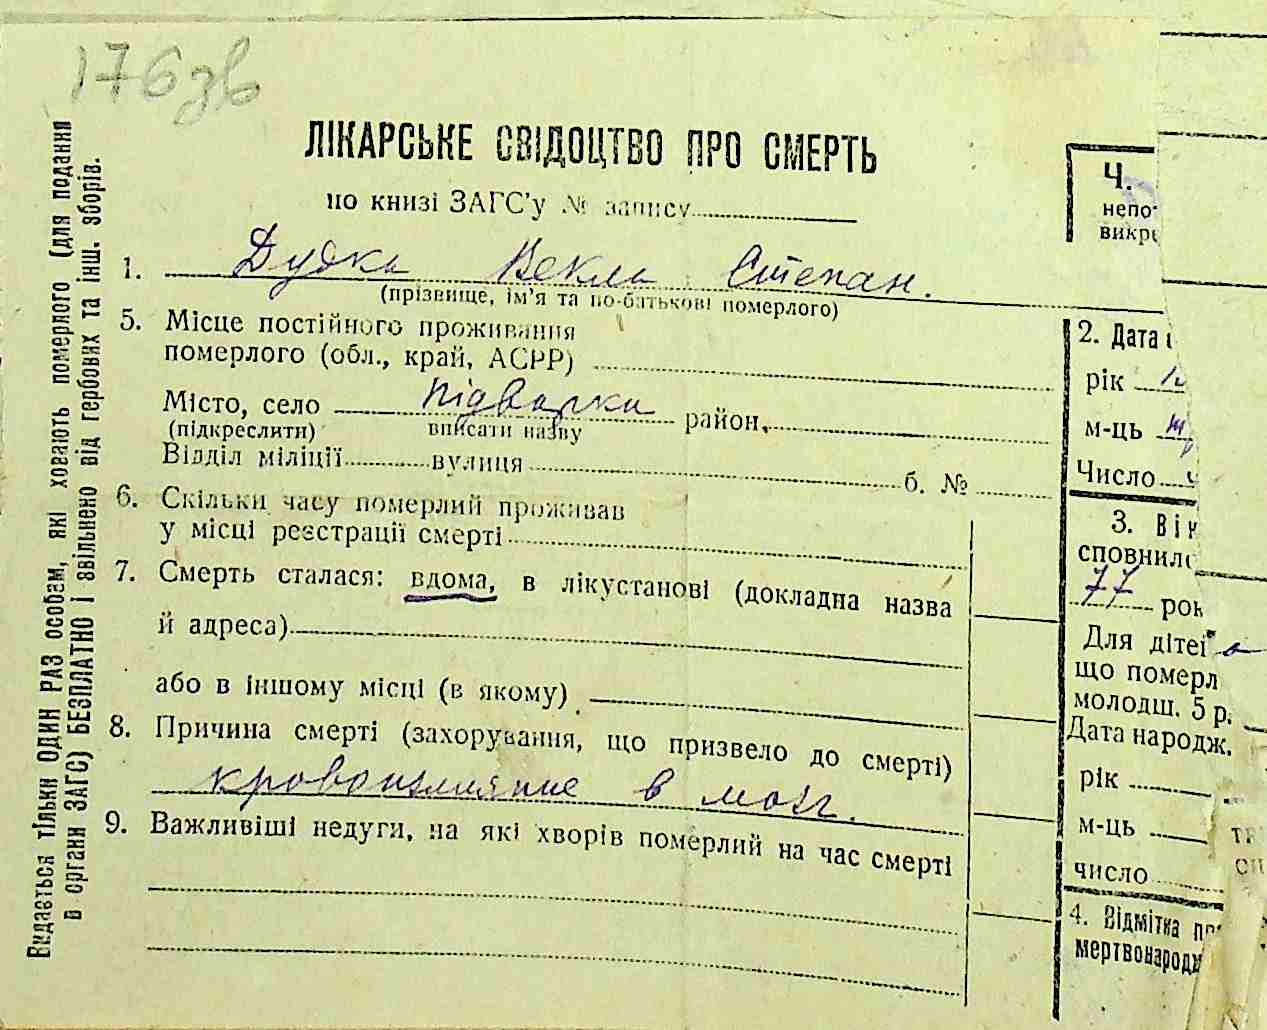 176зв
ЛІКАРСЬКЕ СВІДОЦТВО ПРО СМЕРТЬ
по книзі ЗАГС'у № запису
1. Дудка Векла Степан.
(прізвище, ім'я та по-батькові померлого)
5. Місце постійного проживання
померлого (обл., край, АСРР)
Місто, село Підварки район,
(підкреслити) вписати назву
Відділ міліції вулиця б. №
6. Скільки часу померлий проживав
у місці реєстрації смерті
7. Смерть сталася: вдома, в лікустанові (докладна назва
й адреса)
або в іншому місці (в якому)
8. Причина смерті (захорування, що призвело до смерті)
кровоизлияние в мозг.
9. Важливіші недуги, на які хворів померлий на час смерті
Ч.
непо
викре
2. Дата
рік
м-ць
Число
3. Вік
сповнило
77 рок
Для дітей
що померл
молодш. 5 р.
Дата народж.
рік
м-ць
число
4. Відмітка п
мертвонародж
Видається тільки ОДИН РАЗ особам, які ховають померлого (для подання
в органи ЗАГС) БЕЗПЛАТНО і звільнено від гербових та інш. зборів.